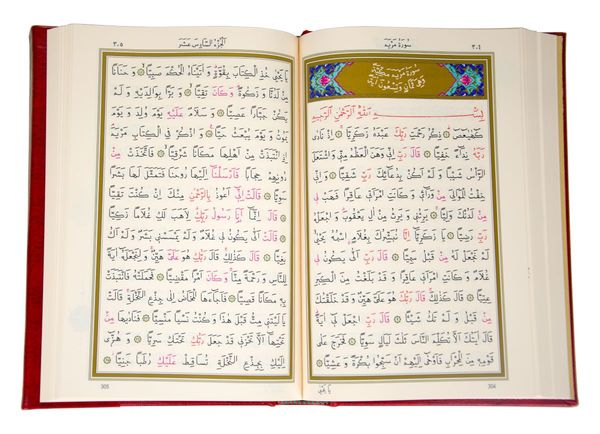 ٣٠٤ سُورَةُ مَرْيَمَ
سُورَةُ مَرْيَمَ مَكِّيَّةٌ
وَهِيَ ثَمَانٍ وَتِسْعُونَ آيَةً
بِسْمِ اللّٰهِ الرَّحْمٰنِ الرَّحِيمِ
كٓهٰيٰعٓصٓ ۞ ذِكْرُ رَحْمَتِ رَبِّكَ عَبْدَهُ زَكَرِيَّا ۞ اِذْ نَادٰى
رَبَّهُ نِدَٓاءً خَفِيًّا ۞ قَالَ رَبِّ اِنِّي وَهَنَ الْعَظْمُ مِنِّي وَاشْتَعَلَ
الرَّأْسُ شَيْبًا وَلَمْ اَكُنْ بِدُعَٓائِكَ رَبِّ شَقِيًّا ۞ وَاِنِّي
خِفْتُ الْمَوَالِيَ مِنْ وَرَٓائِي وَكَانَتِ امْرَاَتِي عَاقِرًا فَهَبْ لِي
مِنْ لَدُنْكَ وَلِيًّا ۞ يَرِثُنِي وَيَرِثُ مِنْ اٰلِ يَعْقُوبَ وَاجْعَلْهُ
رَبِّ رَضِيًّا ۞ يَا زَكَرِيَّا اِنَّا نُبَشِّرُكَ بِغُلَامٍ اسْمُهُ يَحْيٰى
لَمْ نَجْعَلْ لَهُ مِنْ قَبْلُ سَمِيًّا ۞ قَالَ رَبِّ اَنّٰى يَكُونُ لِي
غُلَامٌ وَكَانَتِ امْرَاَتِي عَاقِرًا وَقَدْ بَلَغْتُ مِنَ الْكِبَرِ
عِتِيًّا ۞ قَالَ كَذٰلِكَ قَالَ رَبُّكَ هُوَ عَلَيَّ هَيِّنٌ وَقَدْ خَلَقْتُكَ
مِنْ قَبْلُ وَلَمْ تَكُ شَيْئًا ۞ قَالَ رَبِّ اجْعَلْ لِي اٰيَةً
قَالَ اٰيَتُكَ اَلَّا تُكَلِّمَ النَّاسَ ثَلٰثَ لَيَالٍ سَوِيًّا ۞ فَخَرَجَ عَلٰى
قَوْمِهِ مِنَ الْمِحْرَابِ فَاَوْحٰى اِلَيْهِمْ اَنْ سَبِّحُوا بُكْرَةً وَعَشِيًّا ۞
يَا يَحْيٰى
304
اَلْجُزْءُ السَّادِسَ عَشَرَ ٣٠٥
يَا يَحْيٰى خُذِ الْكِتَابَ بِقُوَّةٍ وَاٰتَيْنَاهُ الْحُكْمَ صَبِيًّا ۞ وَحَنَانًا
مِنْ لَدُنَّا وَزَكٰوةً وَكَانَ تَقِيًّا ۞ وَبَرًّا بِوَالِدَيْهِ وَلَمْ
يَكُنْ جَبَّارًا عَصِيًّا ۞ وَسَلَامٌ عَلَيْهِ يَوْمَ وُلِدَ وَيَوْمَ
يَمُوتُ وَيَوْمَ يُبْعَثُ حَيًّا ۞ وَاذْكُرْ فِي الْكِتَابِ مَرْيَمَ
اِذِ انْتَبَذَتْ مِنْ اَهْلِهَا مَكَانًا شَرْقِيًّا ۞ فَاتَّخَذَتْ مِنْ
دُونِهِمْ حِجَابًا فَاَرْسَلْنَٓا اِلَيْهَا رُوحَنَا فَتَمَثَّلَ لَهَا بَشَرًا
سَوِيًّا ۞ قَالَتْ اِنِّي اَعُوذُ بِالرَّحْمٰنِ مِنْكَ اِنْ كُنْتَ تَقِيًّا
۞ قَالَ اِنَّمَا اَنَا رَسُولُ رَبِّكِ لِاَهَبَ لَكِ غُلَامًا زَكِيًّا
۞ قَالَتْ اَنّٰى يَكُونُ لِي غُلَامٌ وَلَمْ يَمْسَسْنِي بَشَرٌ وَلَمْ اَكُ
بَغِيًّا ۞ قَالَ كَذٰلِكِ قَالَ رَبُّكِ هُوَ عَلَيَّ هَيِّنٌ وَلِنَجْعَلَهُ اٰيَةً
لِلنَّاسِ وَرَحْمَةً مِنَّا وَكَانَ اَمْرًا مَقْضِيًّا ۞ فَحَمَلَتْهُ فَانْتَبَذَتْ
بِهِ مَكَانًا قَصِيًّا ۞ فَاَجَٓاءَهَا الْمَخَاضُ اِلٰى جِذْعِ النَّخْلَةِ قَالَتْ
يَا لَيْتَنِي مِتُّ قَبْلَ هٰذَا وَكُنْتُ نَسْيًا مَنْسِيًّا ۞ فَنَادٰيهَا مِنْ
تَحْتِهَٓا اَلَّا تَحْزَنِي قَدْ جَعَلَ رَبُّكِ تَحْتَكِ سَرِيًّا ۞ وَهُزِّي
اِلَيْكِ بِجِذْعِ النَّخْلَةِ تُسَاقِطْ عَلَيْكِ رُطَبًا جَنِيًّا ۞
305